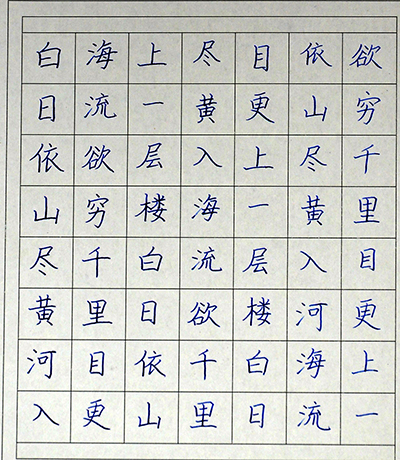 白日依山尽黄河入
海流欲穷千里目更
上一层楼白日依山
尽黄入海流欲千里
目更上一层楼白日
依山尽黄入河海流
欲穷千里目更上一